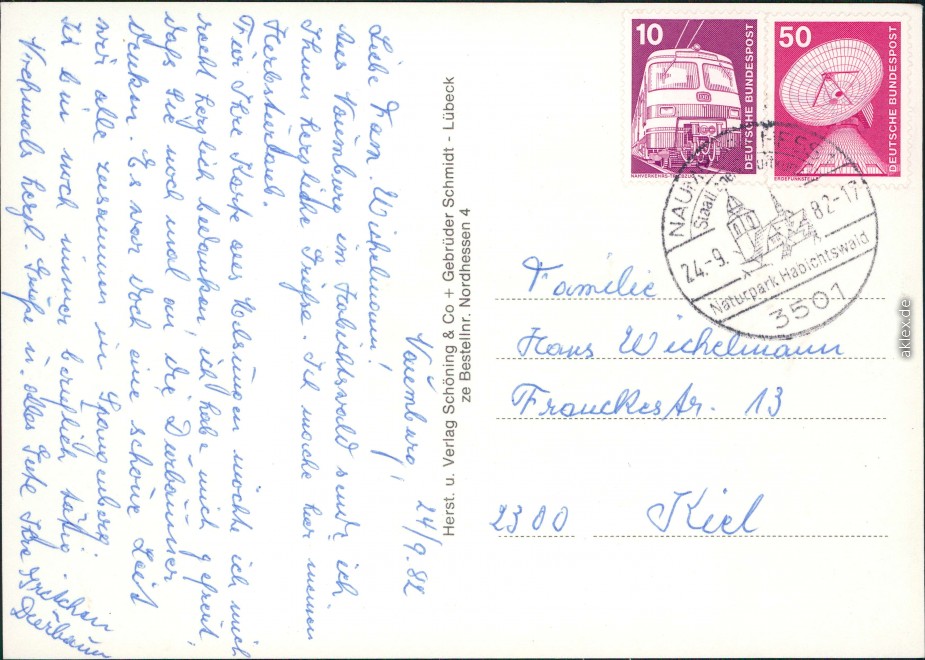 Naumburg, 24/9.82
Liebe Frau Wichelmann!
Aus Naumburg im Habichtswald sende ich
Ihnen herzliche Grüße. Ich mache hier meinen
Herbsturlaub.
Für Ihre Karte aus möchte ich mich
recht herzlich bedanken, ich habe mich gefreut,
daß Sie noch mal an die Dürbäumer
denken. Es war doch eine schöne Zeit
wir alle zusammen in Spangenberg.
Ich bin noch immer beruflich tätig.
Nochmals herzl. Grüße u. alles Gute Ihre Gretchen
Dürbaum
Herst. u. Verlag Schöning & Co + Gebrüder Schmidt - Lübeck
ze Bestellnr. Nordhessen 4
10
DEUTSCHE BUNDESPOST
NAHVERKEHRS-TRIEBZUG
50
DEUTSCHE BUNDESPOST
ERDEFUNKSTELLE
NAU
HESS
24.-9.
82-17
Naturpark Habichtswald
3501
Familie
Hans Wichelmann
Franckestr. 13
2300 Kiel
aklex.de